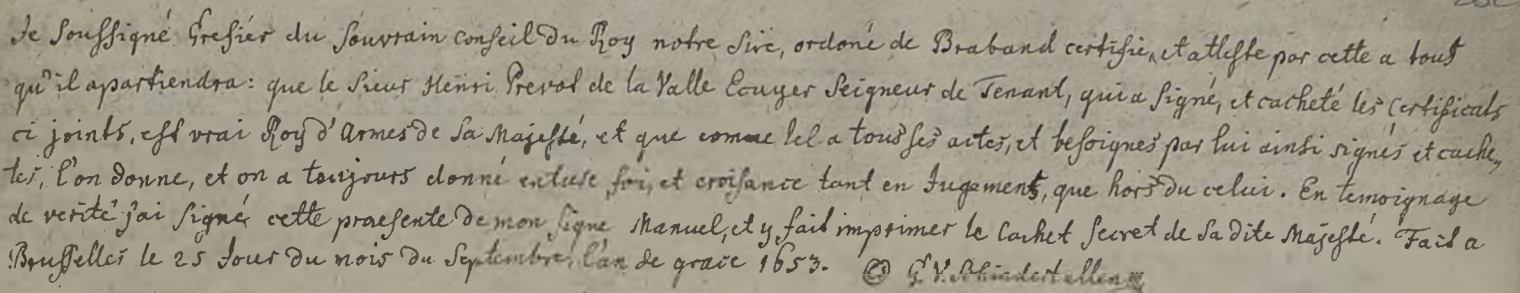 Je soussigné Gresiér du souvrain conseil du Roy notre sire, ordoné de Braband certifie, et atteste par cette a tous
qu'il apartiendra: que le sieur Henri Prevot de la Valle Ecuyer Seigneur de Tenant, qui a signé, et cacheté les certificats
ci joints, est vrai Roy d'Armes de sa Majesté, et que comme tel a tous ses actes, et besoignes par lui ainsi signés et cache,,
tes, l'on donne, et on a toujours donné foi, et croisance tant en Jugement, que hors du celui. En temoignage
de verité j'ai signé cette praesente de mon signe Manuel, et y fait imprimer le Cachet secret de sa dite Majesté. Fait a
Brusselles le 25 Jour du mois du Septembre, l'an de grace 1653. G. V.